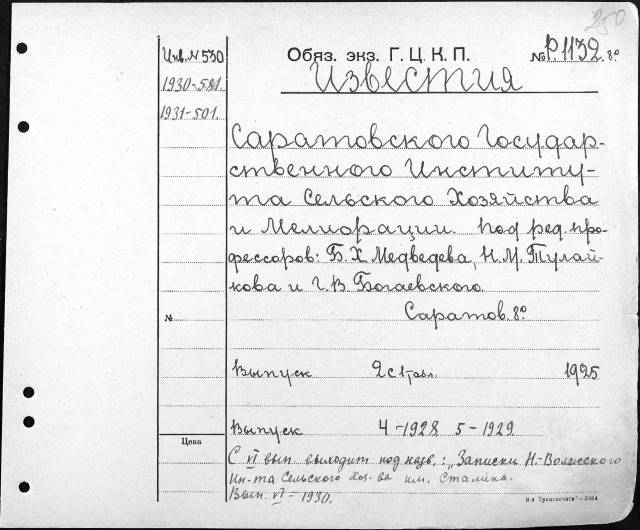 250
Инв. N 530
Обяз. экз. Г. Ц. К. П.
№ Р.1132. 8º
1930-581.
Известия
1931-501.
Саратовского Государ-
ственного Институ-
та Сельского Хозяйства
и Мелиорации. Под ред. про-
фессоров: Б. Х. Медведева, Н. М. Тулай-
кова и Г. В. Богаевского.
№
Саратов. 8º
Выпуск 2 с 1 табл. 1925
Выпуск 4-1928 5-1929
Цена
С VI вып. выходит под назв.: „Записки Н.-Волжского
Ин-та Сельского Хоз-ва им. Сталина.
Вып. VI - 1930.